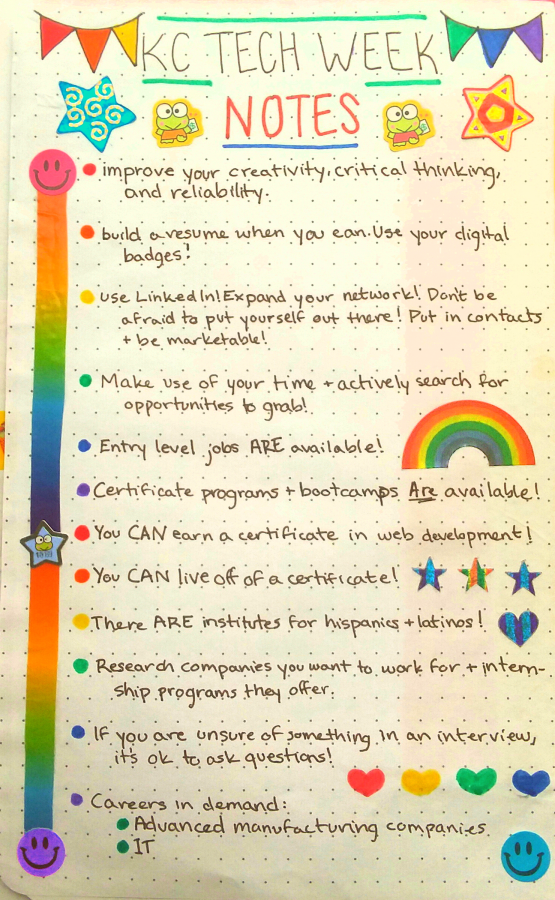 KC TECH WEEK
NOTES
improve your creativity, critical thinking,
and reliability.
build a resume when you can. Use your digital
badges!
use LinkedIn! Expand your network! Don't be
afraid to put yourself out there! Put in contacts
+ be marketable!
Make use of your time + actively search for
opportunities to grab!
Entry level jobs ARE available!
Certificate programs + bootcamps Are available!
You CAN earn a certificate in web development!
You CAN live off of a certificate!
There ARE institutes for hispanics + latinos!
Research companies you want to work for + intern-
ship programs they offer.
If you are unsure of something in an interview,
it's ok to ask questions!
Careers in demand:
Advanced manufacturing companies.
IT